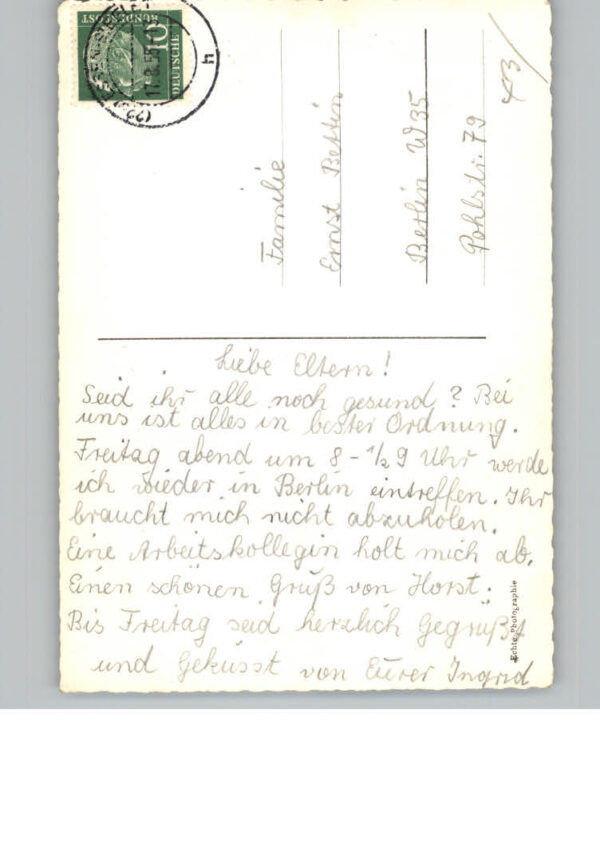 DEUTSCHE
BUNDESPOST
10
h
Familie
Ernst Bettin
Berlin W 35
Pohlstr. 79
Liebe Eltern!
Seid ihr alle noch gesund? Bei
uns ist alles in bester Ordnung.
Freitag abend um 8 - 1/2 9 Uhr werde
ich wieder in Berlin eintreffen. Ihr
braucht mich nicht abzuholen.
Eine Arbeitskollegin holt mich ab.
Einen schönen Gruß von Horst.
Bis Freitag seid herzlich Gegrüßt
und Geküsst von Eurer Ingrid
Echte Photographie